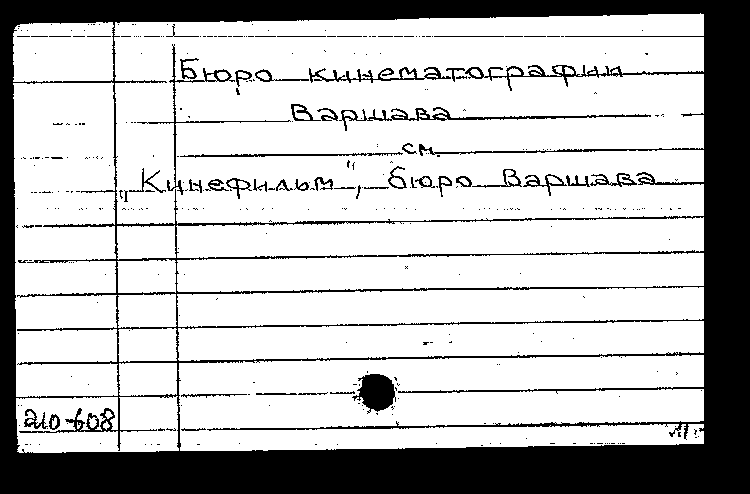 Бюро кинематографии
Варшава
см.
„Кинефильм", бюро Варшава
210-608